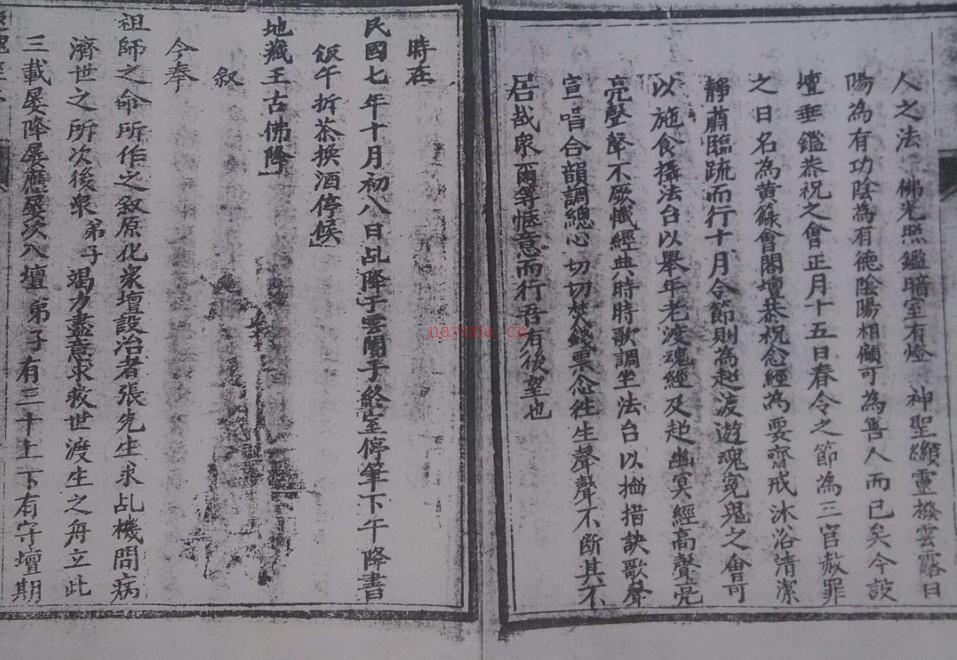 人之法　佛光照鑑暗室有燈　神聖顯靈撥雲露日
陽為有功陰為有德陰陽相顧可為善人而已矣今設
壇垂鑑恭祝之會正月十五日春令之節為三官赦罪
之日名為黃籙會閣壇恭祝念經為要齋戒沐浴清潔
靜肅臨疏而行十月令節則為超渡遊魂冤鬼之會可
以施食攝法台以舉年老渡魂經及超幽冥經高聲亮
亮聲聲不厥懺經典時時歌調坐法台以搯指訣歌聲
宣唱合韻調總心切切焚錢票念往生聲聲不斷其不
居哉眾爾等愜意而行吾有後望也
時在
民國七年十月初八日乩降子雲開子終室停筆下午降書
飯午折茶換酒停候
地藏王古佛降
叙
今奉
祖師之命所作之叙原化眾壇設治者張先生求乩機問病
濟世之所次後眾弟子竭力盡意求救世渡生之舟立此
三載屡降屡應屡次入壇弟子有三十上下有守壇期
nayona.cn